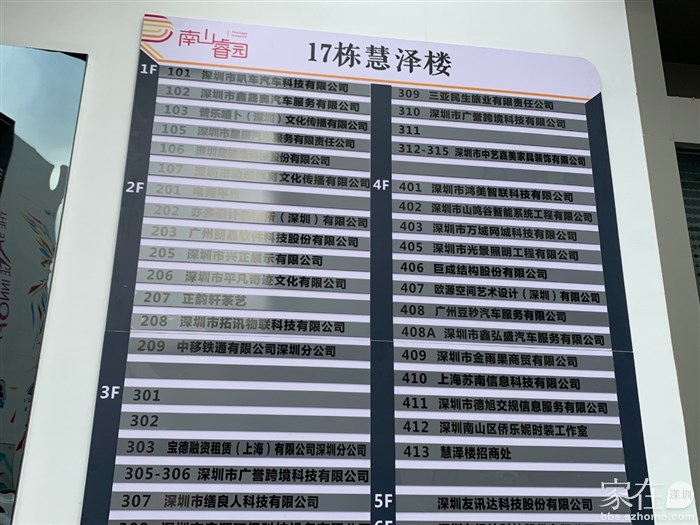 南山睿园
17栋慧泽楼
1F
101 深圳市帆车汽车科技有限公司
102 深圳市鑫晟商汽车服务有限公司
103 (深圳)文化传播有限公司
105 深圳市 服务有限责任公司
106 股份有限公司
107 文化传播有限公司
2F
201
202 (深圳)有限公司
203 广州 科技股份有限公司
205 深圳市兴正展示有限公司
206 深圳市平凡奇迹文化有限公司
207 正韵轩茶艺
208 深圳市拓讯物联科技有限公司
209 中移铁通有限公司深圳分公司
3F
301
302
303 宝德融资租赁(上海)有限公司深圳分公司
305-306 深圳市广誉跨境科技有限公司
307 深圳市缮良人科技有限公司
309 三亚民生旅业有限责任公司
310 深圳市广誉跨境科技有限公司
311
312-315 深圳市中艺鑫美家具装饰有限公司
4F
401 深圳市鸿美智联科技有限公司
402 深圳市山鸣谷智能系统工程有限公司
403 深圳市万域网城科技有限公司
405 深圳市光景照明工程有限公司
406 巨成结构股份有限公司
407 欧源空间艺术设计(深圳)有限公司
408 广州豆秒汽车服务有限公司
408A 深圳市鑫弘盛汽车服务有限公司
409 深圳市金雨果商贸有限公司
410 上海苏南信息科技有限公司
411 深圳市德旭交规信息服务有限公司
412 深圳南山区侨乐妮时装工作室
413 慧泽楼招商处
5F
深圳友讯达科技股份有限公司
家在深圳
bbs.szhome.com